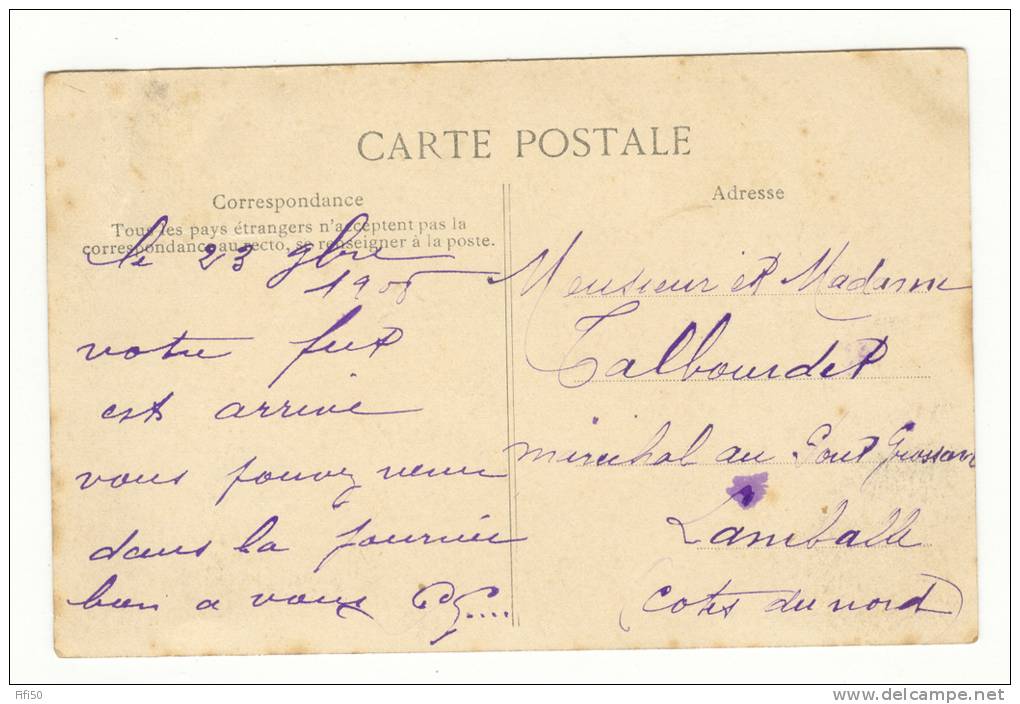 CARTE POSTALE
Correspondance
Tous les pays étrangers n'acceptent pas la
correspondance au recto, se renseigner à la poste.
le 23 9bre
votre fut
est arrivé
vous pouvez venir
dans la journée
bon a vous
Adresse
Monsieur et Madame
Talbourdet
maréchal au Pont Grossard
Lamballe
(cotes du nord)
fifi50
delcampe.net